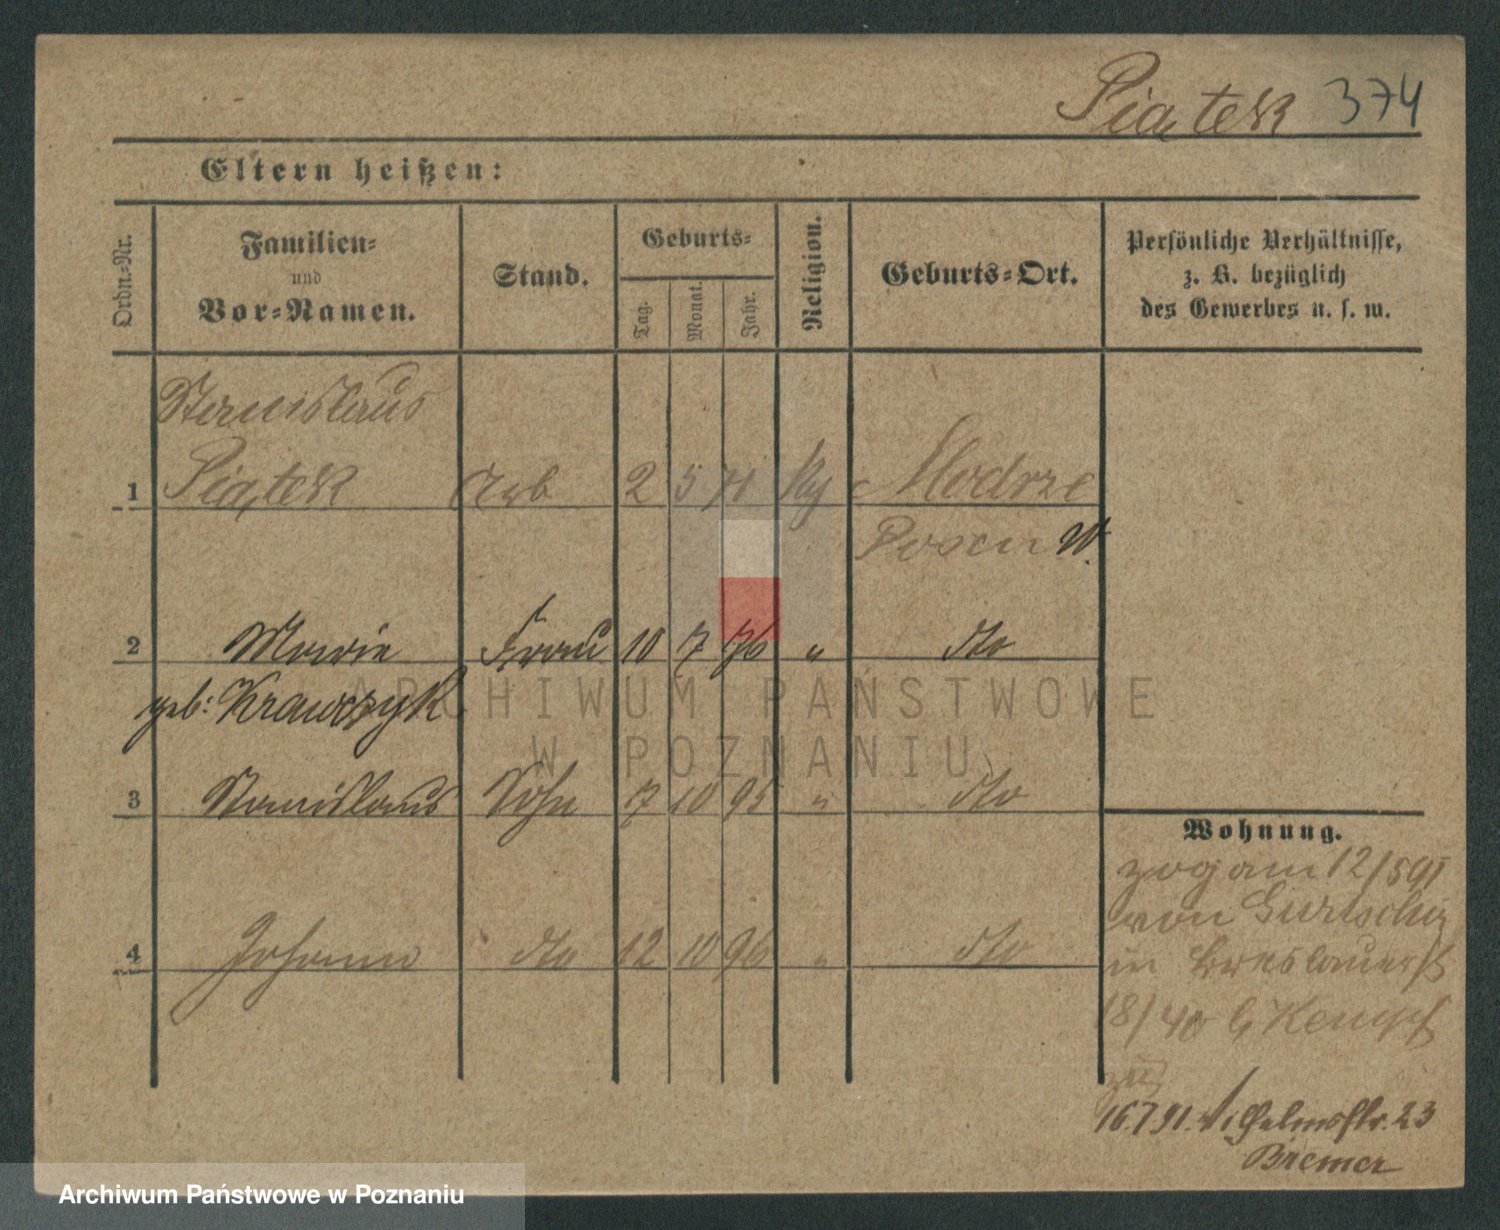 Piątek 374
Eltern heißen:
Ordn.-Nr.
Familien-
und
Vor-Namen.
Stand.
Geburts-
Tag.
Monat.
Jahr.
Religion.
Geburts-Ort.
Persönliche Verhältnisse,
z. B. bezüglich
des Gewerbes u. s. w.
Stanislaus
1 Piątek Arb 2 5 71 Modrze
Posen W.
2 Marie Frau 10 7 76 " dto
geb: Krawczyk
3 Stanislaus Sohn 7 10 95 " dto
4 Johann dto 12 10 96 " dto
Wohnung.
zog am 12/5 91
von Gurtschin
in Breslauerst
18/40 b Kempf
zu
16.7.91. Wilhelmstr. 23
Bremer
ARCHIWUM PAŃSTWOWE
W POZNANIU
Archiwum Państwowe w Poznaniu